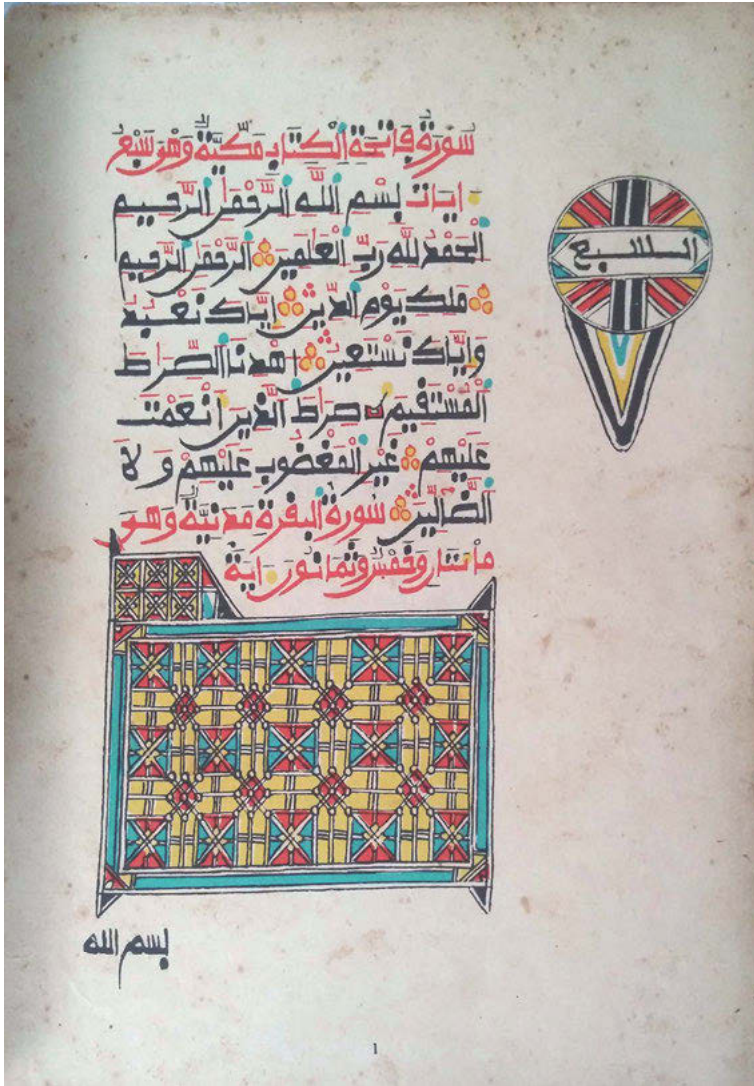 سُورَةُ فَاتِحَةِ الْكِتَابِ مَكِّيَّةٌ وَهْوَ سَبْعُ
ايات بِسْمِ اللَّهِ الرَّحْمَٰنِ الرَّحِيمِ
الْحَمْدُ لِلَّهِ رَبِّ الْعَٰلَمِينَ الرَّحْمَٰنِ الرَّحِيمِ
مَلِكِ يَوْمِ الدِّينِ إِيَّاكَ نَعْبُدُ
وَإِيَّاكَ نَسْتَعِينُ اهْدِنَا الصِّرَاطَ
الْمُسْتَقِيمَ صِرَاطَ الَّذِينَ أَنْعَمْتَ
عَلَيْهِمْ غَيْرِ الْمَغْضُوبِ عَلَيْهِمْ وَلَا
الضَّالِّينَ سُورَةُ الْبَقَرَةِ مَدَنِيَّةٌ وَهْوَ
مائتان وَخَمْسٌ وثمانون اية
السبع
بسم الله
1